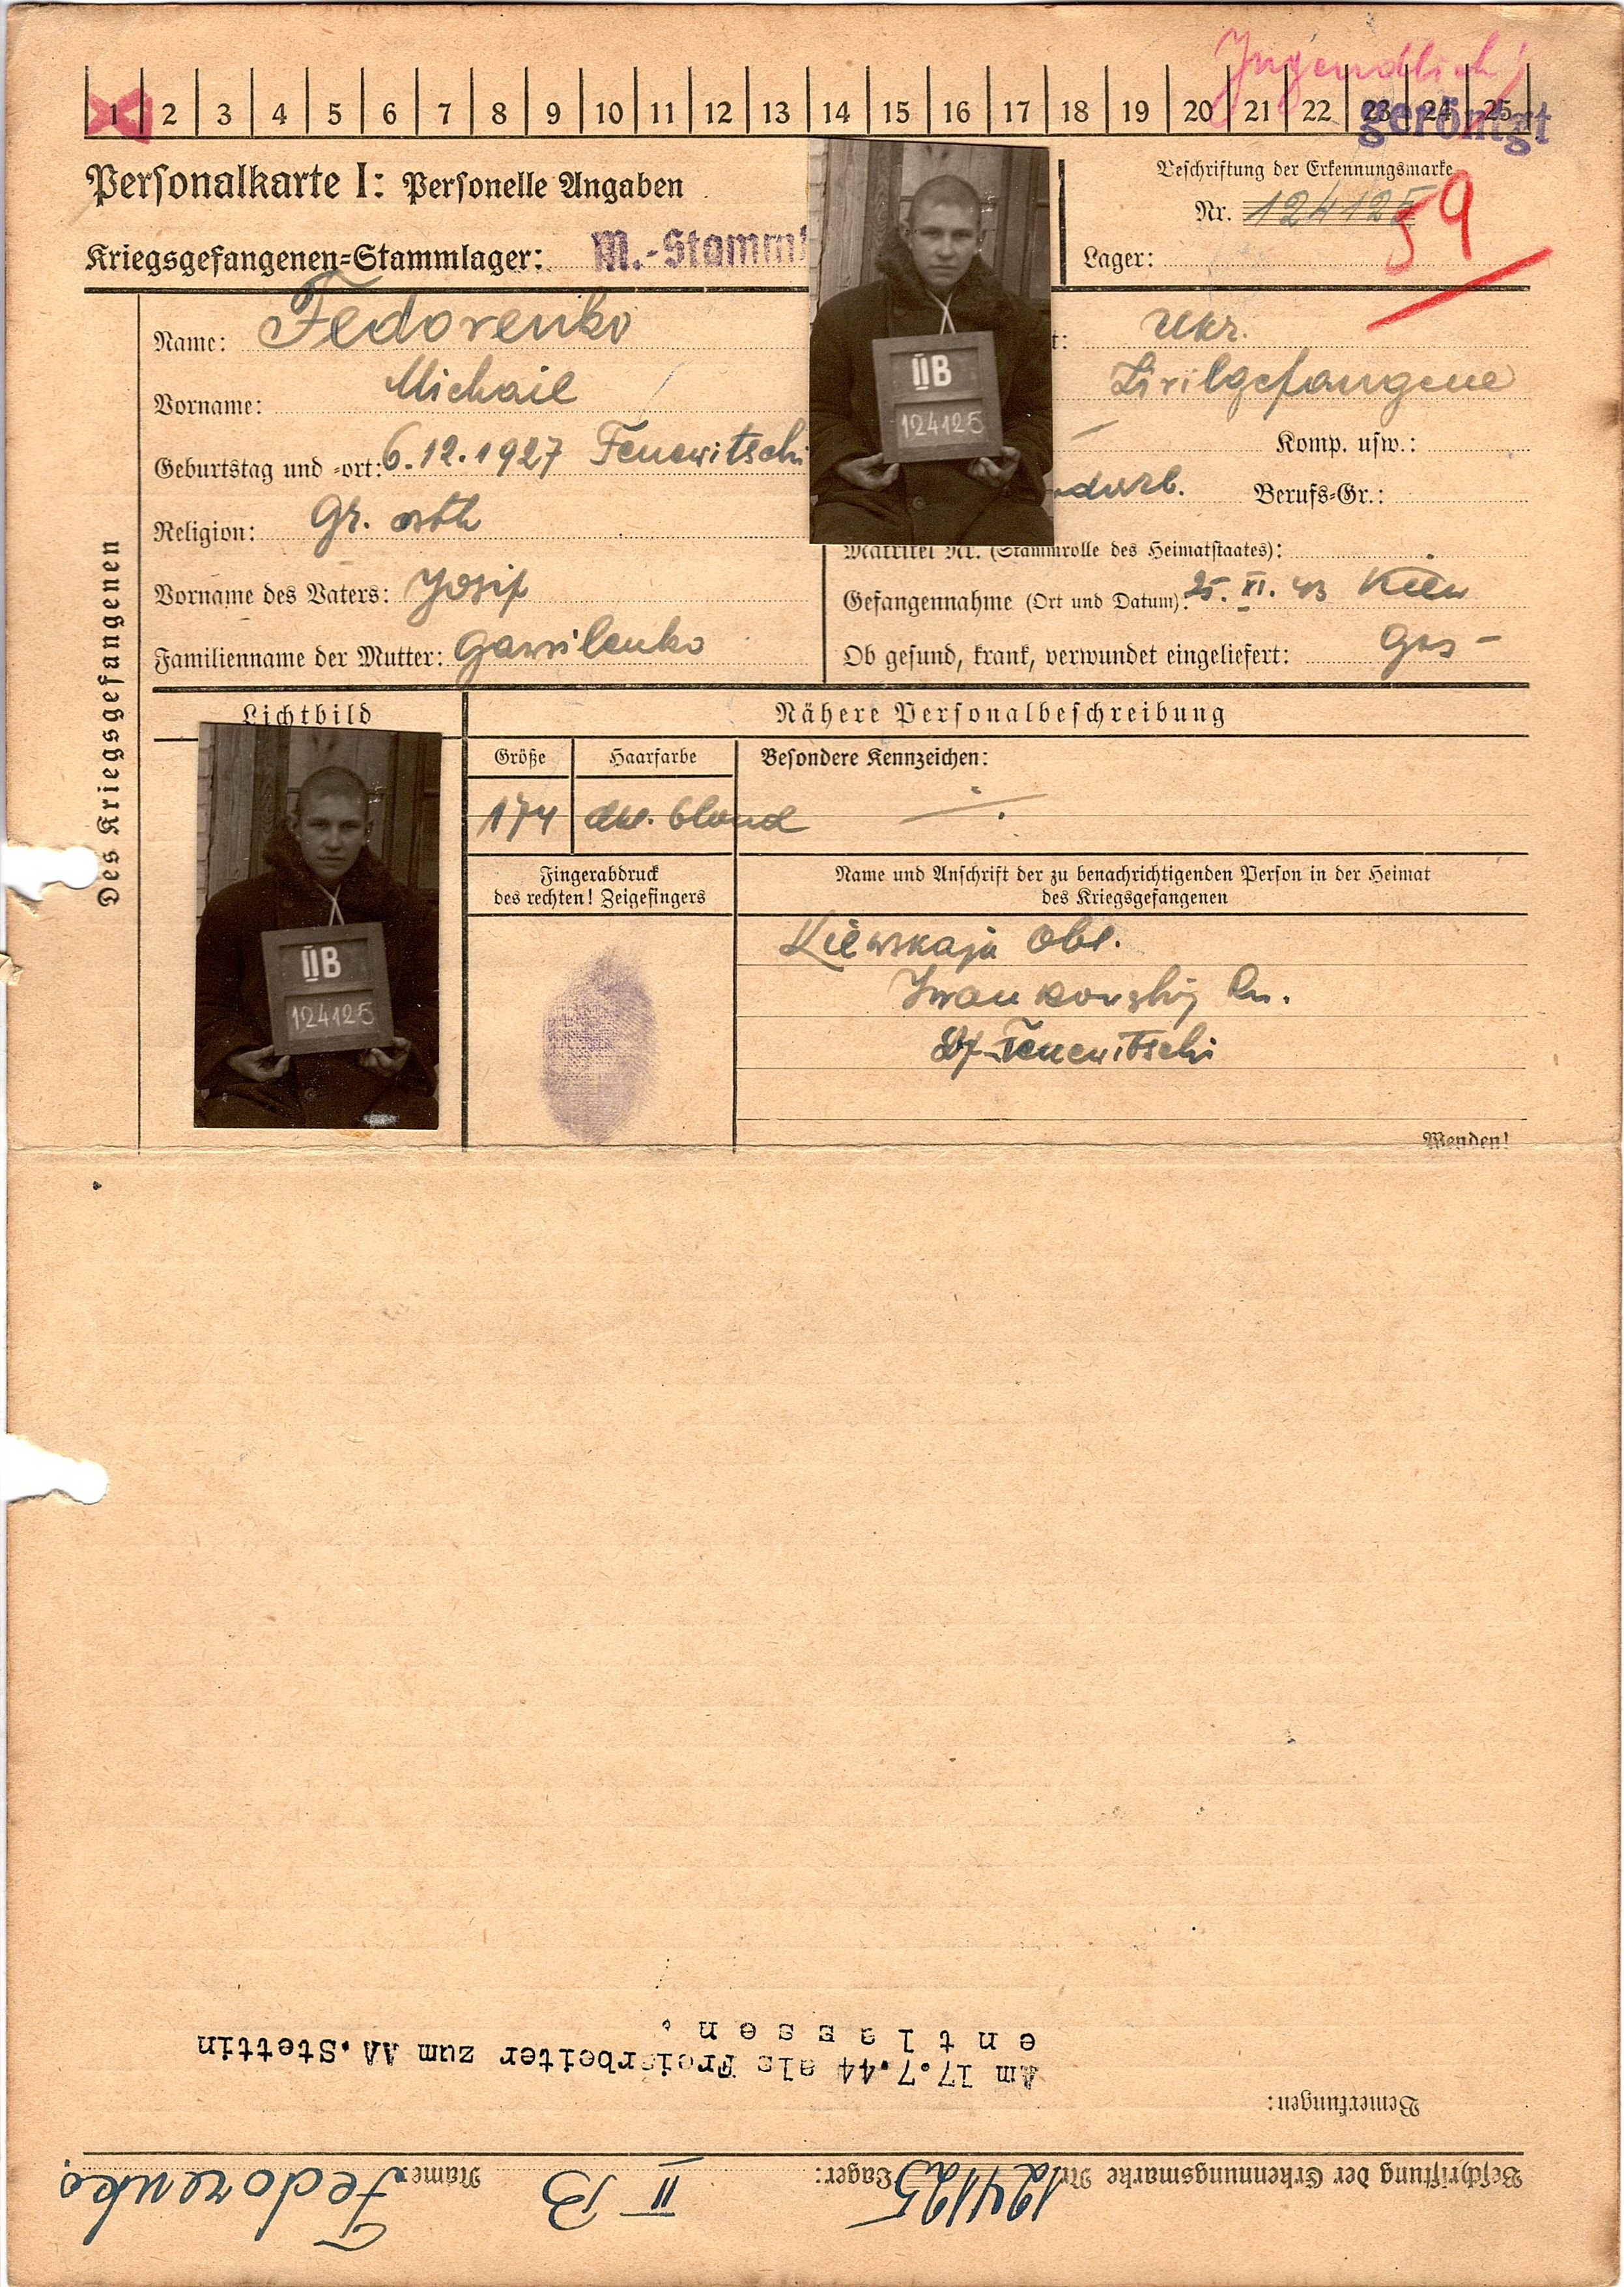 Jugendlich!
1 2 3 4 5 6 7 8 9 10 11 12 13 14 15 16 17 18 19 20 21 22 23 24 25
geröntgt
Personalkarte I: Personelle Angaben
Kriegsgefangenen-Stammlager: M.-Stamml
Beschriftung der Erkennungsmarke
Nr. 124125
59
Lager:
Des Kriegsgefangenen
Name: Fedorenko
Vorname: Michail
Geburtstag und -ort: 6.12.1927 Fenewitschi
Religion: Gr. orth
Vorname des Vaters: Josif
Familienname der Mutter: Gawrilenko
IIB
124125
t: Ukr.
Zivilgefangene
Komp. usw.:
Berufs-Gr.:
Matrikel Nr. (Stammrolle des Heimatstaates):
Gefangennahme (Ort und Datum): 25. XI. 43 Kiew
Ob gesund, krank, verwundet eingeliefert: Ges -
Lichtbild
IIB
124125
Nähere Personalbeschreibung
Größe Haarfarbe Besondere Kennzeichen:
174 dkl. blond
Fingerabdruck
des rechten! Zeigefingers
Name und Anschrift der zu benachrichtigenden Person in der Heimat
des Kriegsgefangenen
Kiewskaja Obl.
Iwankowskij Rn.
Df. Fenewitschi
Wenden!
Beschriftung der Erkennungsmarke Nr. 124125 Lager: II B Name: Fedorenko.
Bemerkungen:
Am 17.7.44 als Freiarbeiter zum AA. Stettin
entlassen.